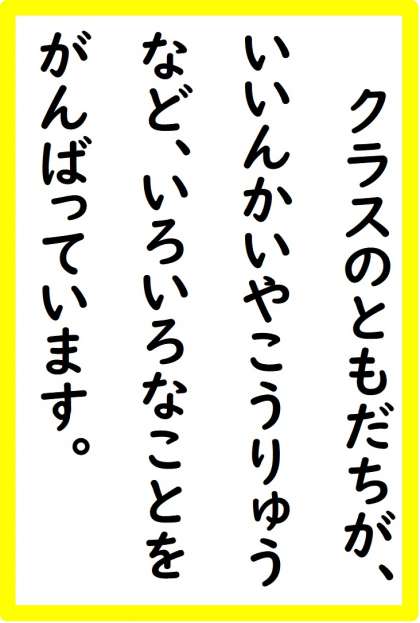 クラスのともだちが、
いいんかいやこうりゅう
など、いろいろなことを
がんばっています。